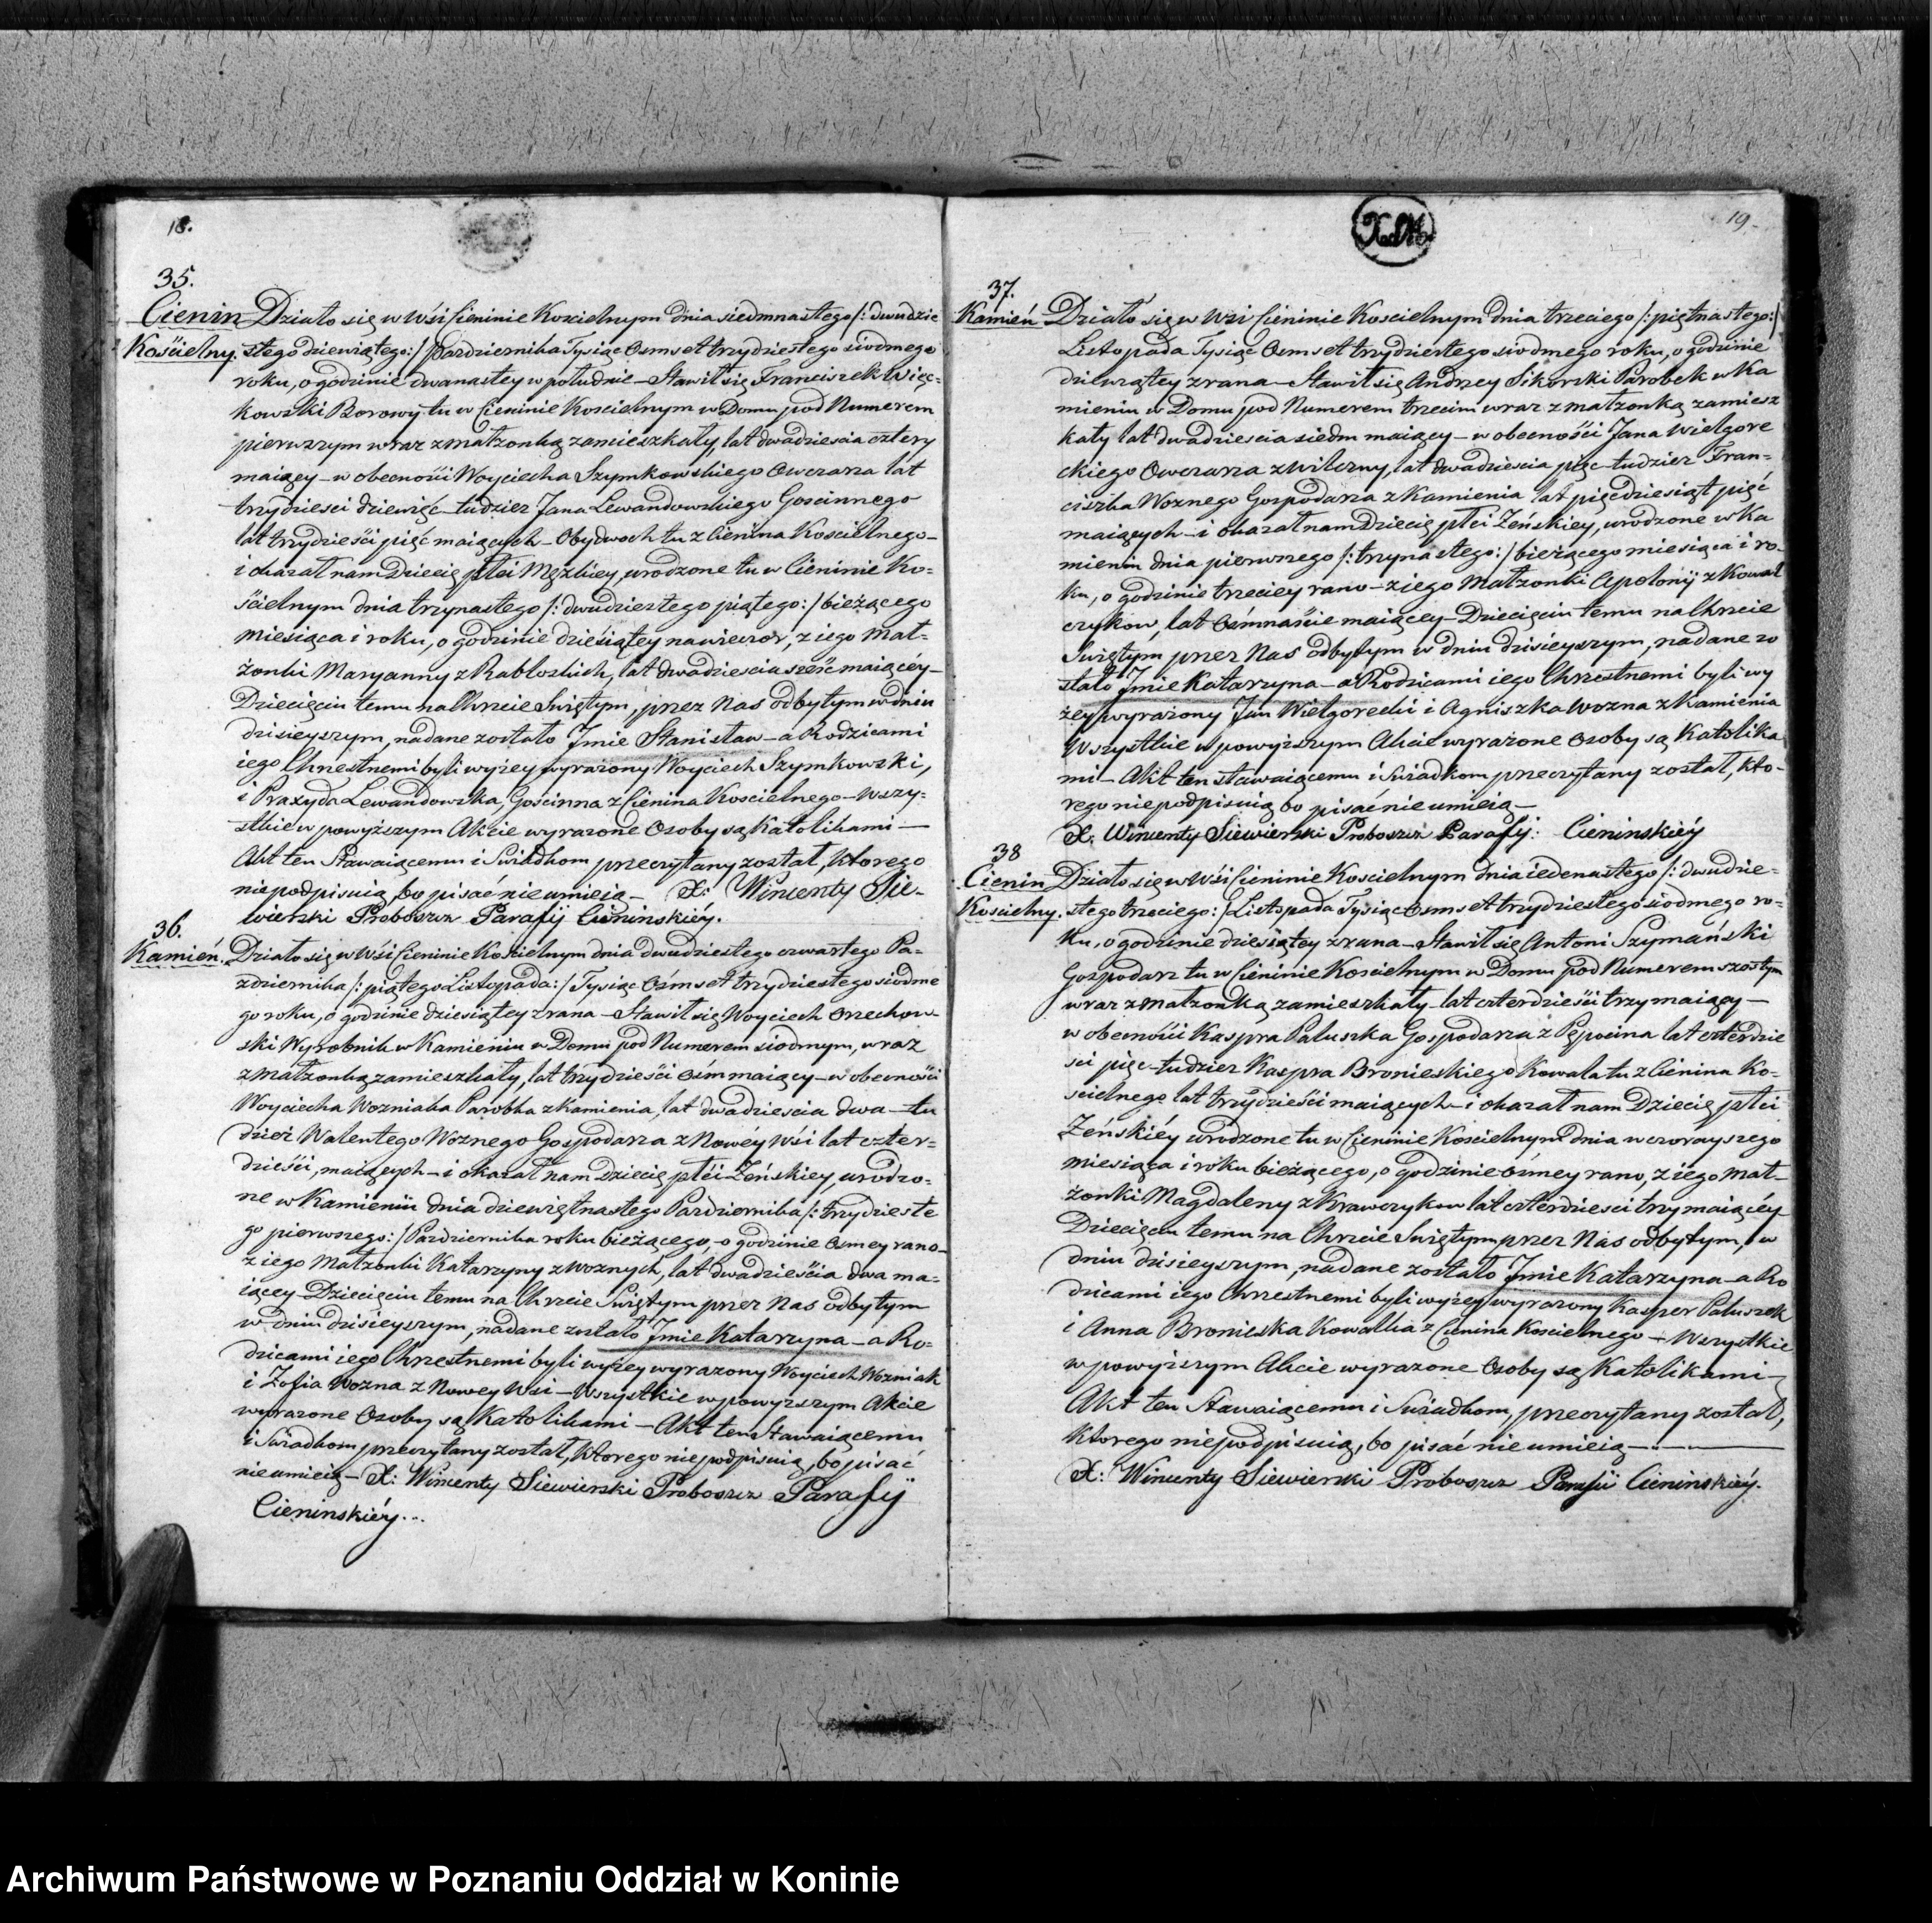 18.
35.
Cienin Działo się w Wsi Cieninie Koscielnym dnia siedmnastego /: dwudzie
Kościelny. stego dziewiątego:/ Pazdziernika Tysiąc Osmset trzydziestego siodmego
roku, o godzinie dwanastey w południe – Stawił się Franciszek Więc-
kowski Borowy tu w Cieninie Koscielnym w Domu pod Numerem
pierwszym wraz z małzonką zamieszkały, lat dwadziescia cztery
maiący – w obecnosci Woyciecha Szymkowskiego Owczarza lat
trzydziesci dziewięc – tudziez Jana Lewandowskiego Goscinnego
lat trzydzieści pięć maiących – Obydwoch tu z Cienina Koscielnego –
i okazał nam Dziecię płci Męzkiey, urodzone tu w Cieninie Ko=
ścielnym dnia trzynastego /: dwudziestego piątego:/ bieżącego
miesiąca i roku, o godzinie dziesiątey na wieczor, z iego Mał=
żonki Maryanny z Rabloskich, lat dwadziescia sześc maiącéy –
Dziecięciu temu na Chrzcie Swiętym, przez Nas odbytym w dniu
dzisieyszym, nadane zostało Jmie Stanisław – a Rodzicami
iego Chrzestnemi byli wyżey wyrażony Woyciech Szymkowski,
i Praxyda Lewandowska, Goscinna z Cienina Koscielnego – Wszy=
stkie w powyższym Akcie wyrazone Osoby są Katolikami —
Akt ten Stawaiącemu i Swiadkom przeczytany został, ktorego
niepodpisuią, bo pisać nie umieią – X: Wincenty Sie-
wierski Proboszcz Parafij Cieninskiéy.
36.
Kamień. Działo się w Wśi Cieninie Koscielnym dnia dwudziestego czwartego Pa=
zdziernika /: piątego Listopada:/ Tysiąc Ośmset trzydziestego siodme
go roku, o godzinie dziesiątey zrana – Stawił się Woyciech Orzechow-
ski Wyrobnik w Kamieniu w Domu pod Numerem siodmym, wraz
z małzonką zamieszkały, lat trzydzieści Ośm maiący – w obecności
Woyciecha Wozniaka Parobka z Kamienia, lat dwadziescia dwa – tu
dzież Walentego Woznego Gospodarza z Nowéy Wśi lat czter=
dzieści, maiących – i okazał nam Dziecię płci Żeńskiey, urodzo-
ne w Kamieniu dnia dziewiętnastego Pazdziernika /: trzydzieste
go pierwszego:/ Pazdziernika roku bieżącego, o godzinie Osmey rano –
z iego Małzonki Katarzyny z Woznych, lat dwadzieścia dwa ma=
iącey – Dziecięciu temu na Chrzcie Swiętym przez Nas odbytym
w dniu dzisieyszym, nadane zostało Jmie Katarzyna – a Ro=
dzicami iego Chrzestnemi byli wyżey wyrazony Woyciech Wozniak
i Zofia Wozna z Nowey Wsi – Wszystkie w powyzszym Akcie
wyrazone Osoby są Katolikami – Akt ten Stawaiącemu
i Swiadkom przeczytany został, ktorego niepodpisuią, bo pisać
nie umieią – X: Wincenty Siewierski Proboszcz Parafij
Cieninskiéy...
19.
37.
Kamień Działo się w Wsi Cieninie Koscielnym dnia trzeciego /: piętnastego:/
Listopada Tysiąc Osmset trzydziestego siodmego roku, o godzinie
dziewiątey zrana – Stawił się Andrzey Sikorski Parobek w Ka
mieniu w Domu pod Numerem trzecim wraz z małzonką zamiesz
kały lat dwadziescia siedm maiący – w obecności Jana Wielgore
ckiego Owczarza z Wilczny, lat dwadziescia pięc – tudziez Fran=
ciszka Woznego Gospodarza z Kamienia lat pięcdziesiąt pięć
maiących – i okazał nam Dziecię płci Żeńskiey, urodzone w Ka
mieniu dnia pierwszego /: trzynastego:/ bieżącego miesiąca i ro-
ku, o godzinie trzeciey rano – z iego Małzonki Apolonij z Kowal
czykow, lat Ośmnaście maiącey – Dziecięciu temu na Chrzcie
Swiętym przez Nas odbytym w dniu dzisieyszym, nadane zo
stało Jmie Katarzyna – a Rodzicami iego Chrzestnemi byli wy
żey wyrażony Jan Wielgorecki i Agniszka Wozna z Kamienia
Wszystkie w powyższym Akcie wyrażone Osoby są Katolika
mi – Akt ten stawaiącemu i Swiadkom przeczytany został, kto-
rego niepodpisuią bo pisać nie umieią –
X: Wincenty Siewierski Proboszcz Parafij: Cieninskiéy
38
Cienin Działo się w Wśi Cieninie Koscielnym dnia iedenastego /: dwudzie=
Koscielny. stego trzeciego:/ Listopada Tysiąc Osmset trzydziestego siodmego ro=
ku, o godzinie dziesiątey zrana – Stawił się Antoni Szymański
Gospodarz tu w Cieninie Koscielnym w Domu pod Numerem szostym
wraz z małzonką zamieszkały – lat czterdzieści trzy maiący —
w obecnośći Kaspra Paluszka Gospodarza z Pępocina lat czterdzie
sci pięc – tudziez Kaspra Bronieskiego Kowala tu z Cienina Ko=
scielnego lat trzydzieści maiących – i okazał nam Dziecię płci
Żeńskiéy urodzone tu w Cieninie Koscielnym dnia wczorayszego
miesiąca i roku bieżącego, o godzinie ósmey rano, z iego Mał-
żonki Magdaleny z Krawczykow lat czterdziesci trzy maiącéy
Dziecięciu temu na Chrzcie Swiętym przez Nas odbytym, w
dniu dzisieyszym, nadane zostało Jmie Katarzyna – a Ro
dzicami iego Chrzestnemi byli wyżey wyrazony Kasper Paluszek
i Anna Bronieska Kowalka z Cienina Koscielnego – Wszystkie
w powyższym Akcie wyrazone Osoby są Katolikami –
Akt ten Stawaiącemu i Swiadkom, przeczytany został,
ktorego niepodpisuią, bo pisać nie umieią —
X: Wincenty Siewierski Proboszcz Parafii Cieninskiéy.
Archiwum Państwowe w Poznaniu Oddział w Koninie